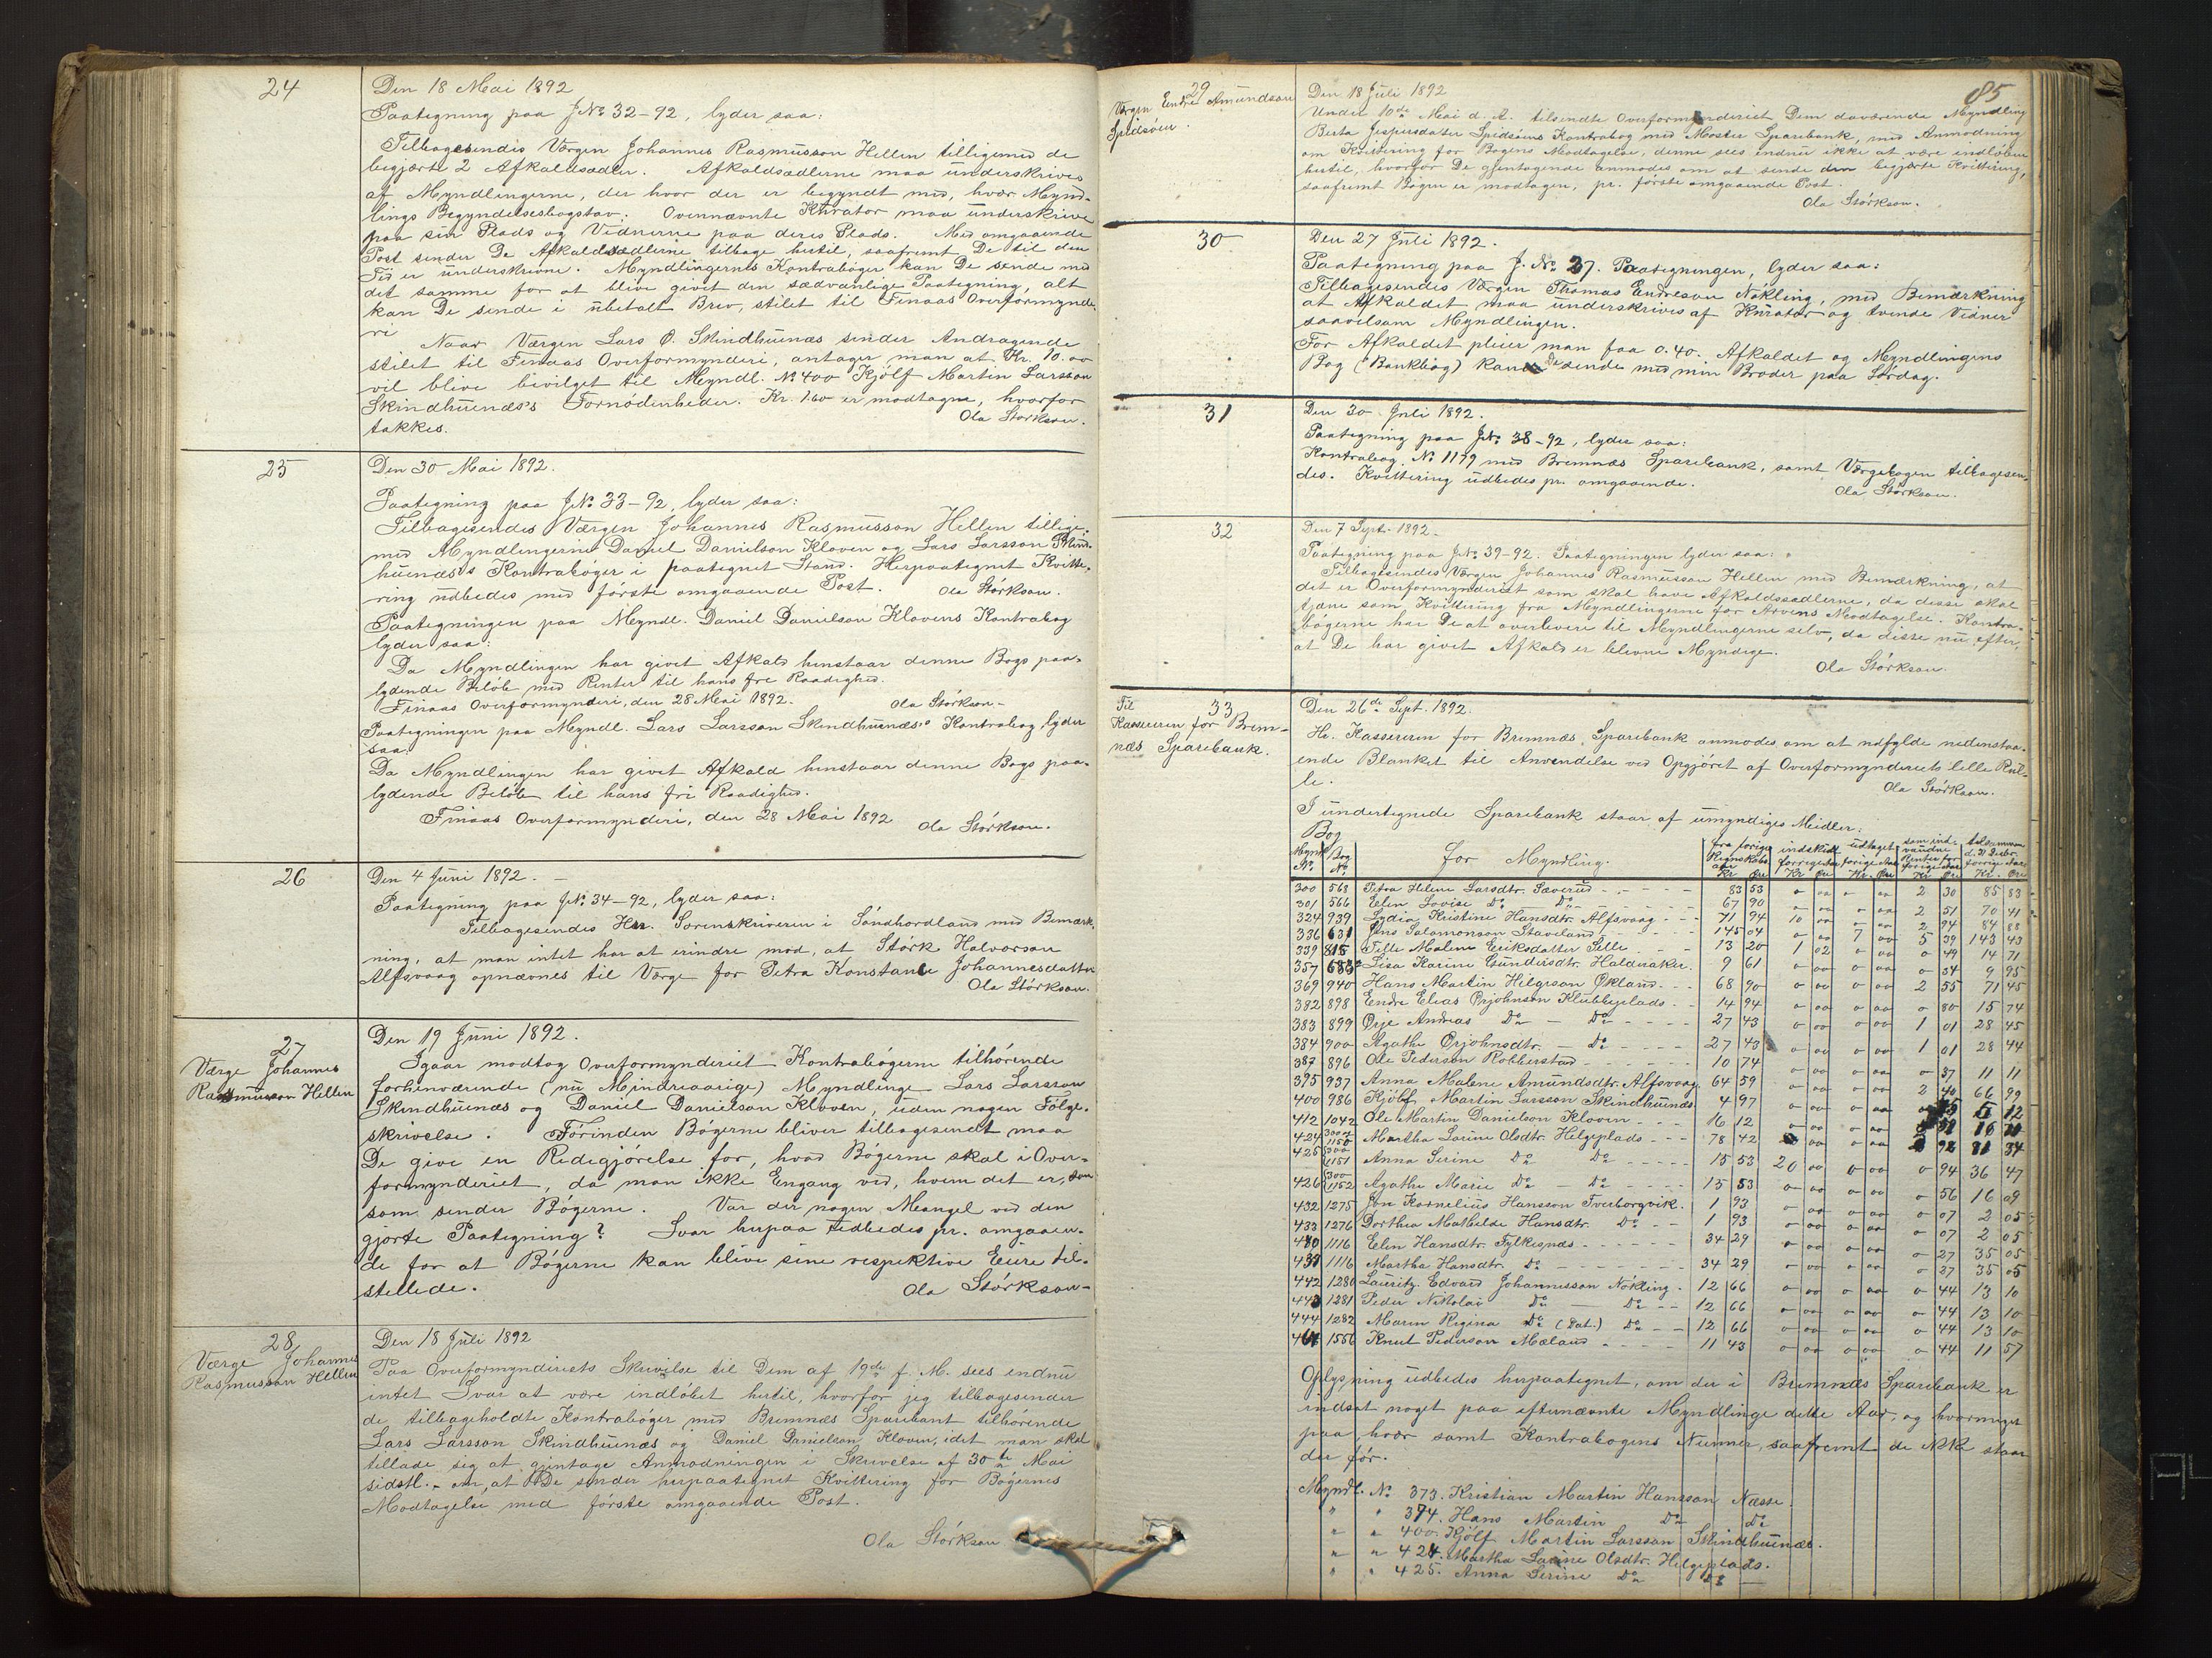 24
Den 18 Mai 1892
Paategning paa J.No. 32-92, lyder saa:
Tilbagesendis Værgen Johannes Rasmusson Hellen tilligemed de
begjærte 2 Afkaldsedler. Afkaldsædlerne maa underskrives
af Myndlingerne, der hvor der er begyndt med, hver Mynd-
lings Begyndelsesbogstav. Overnævnte Kurator maa underskrive
paa sin Plads og Vidnerne paa deres Plads. Med omgaaende
Post sender De Afkaldsædlerne tilbage hertil, saafremt De til den
Tid er underskrevne. Myndlingernes Kontrabøger kan De sende med
det samme for at blive givet den sædvanlige Paategning, alt
kan De sende i ubetalt Brev, stilet til Finaas Overformynde-
ri
Naar Værgen Lars O. Skindhuenæs sender Andragende
stilet til Finaas Overformynderi, antager man at Kr. 10.00
vil blive bevilget til Myndl. No 400 Kjølf Martin Larsson
Skindhuenæs's Fornødenheder. Kr. 1.60 er modtagne, hvorfor
takkes.
Ola Størkson.
25
Den 30 Mai 1892.
Paategning paa J.No. 33-92, lyder saa:
Tilbagesendis Værgen Johannes Rasmusson Hellen tillige-
med Myndlingerne Daniel Danielson Kloven og Lars Larsson Skind-
huenæs's Kontrabøger i paategnet Stand. Herpaategnet Kvitte-
ring udbedes med første omgaaende Post. Ola Størkson.
Paategningen paa Myndl. Daniel Danielson Klovens Kontrabog
lyder saa:
Da Myndlingen har givet Afkald henstaar denne Bogs paa-
lydende Beløb med Renter til hans fri Raadighed.
Finaas Overformynderi, den 28 Mai 1892. Ola Størkson.
Paategningen paa Myndl. Lars Larsson Skindhuenæs's Kontrabog lyder
saa:
Da Myndlingen har givet Afkald henstaar denne Bogs paa-
lydende Beløb til hans fri Raadighed.
Finaas Overformynderi, den 28 Mai 1892
Ola Størkson.
26
Den 4 Juni 1892.
Paategning paa J.No. 34-92, lyder saa:
Tilbagesendes Hrr. Sorenskriveren i Søndhordland med Bemærk-
ning, at man intet har at erindre mod, at Størk Halvorson
Alfsvaag opnævnes til Værge for Petra Konstance Johannesdatter
Ola Størkson.
27
Værge Johannes
Rasmusson Hellen
Den 19 Juni 1892.
Igaar modtog Overformynderiet Kontrabøgerne tilhørende
forhenværende (nu Mindreaarige) Myndlinge Lars Larsson
Skindhuenæs og Daniel Danielson Kloven, uden nogen Følge-
skrivelse. Førinden Bøgerne bliver tilbagesendt maa
De give en Redegjørelse for, hvad Bøgerne skal i Over-
formynderiet, da man ikke Engang ved, hvem det er, som
som sender Bøgerne. Var der nogen Mangel ved den
gjorte Paategning? Svar herpaa udbedes pr. omgaaen-
de for at Bøgerne kan blive sine respektive Eiere til-
stillede.
Ola Størkson-
28
Værge Johannes
Rasmusson Hellen
Den 18 Juli 1892
Paa Overformynderiets Skrivelse til Dem af 19de f. M. sees endnu
intet Svar at være indløbet hertil, hvorfor jeg tilbagesender
de tilbageholdte Kontrabøger med Bremnæs Sparebank tilhørende
Lars Larsson Skindhuenæs og Daniel Danielson Kloven, idet man skal
tillade seg at gjentage Anmodningen i Skrivelse af 30te Mai
sidstl. om, at De sender herpaategnet Kvittering for Bøgernes
Modtagelse med første omgaaende Post.
Ola Størkson
85
29
Værgen Endre Amundson
Spidsøen.
Den 18 Juli 1892
Under 10de Mai d. A. tilsendte Overformynderiet Dem daværende Myndling
Berta Jespersdatter Spidsøens Kontrabog med Moster Sparebank, med Anmodning
om Kvittering for Bogens Modtagelse, denne sees endnu ikke at være indløben
hertil, hvorfor De gjentagende anmodes om at sende den begjærte Kvittering,
saafremt Bogen er modtagen, pr. første omgaaende Post.
Ola Størkson.
30
Den 27 Juli 1892.
Paategning paa J. No. 37. Paategningen, lyder saa:
Tilbagesendes Værgen Thomas Endreson Nøkling, med Bemærkning
at Afkaldet maa underskrives af Kurator og tvende Vidner
saavelsom Myndlingen.
For Afkaldet pleier man faa 0.40. Afkaldet og Myndlingens
Bog (Bankbog) kan De sende med min Broder paa Lørdag.
31
Den 30 Juli 1892.
Paategning paa J.No. 38-92, lyder saa:
Kontrabog No 1179 med Bremnæs Sparebank, samt Værgebogen tilbagesen-
des. Kvittering udbedes pr. omgaaende.
Ola Størkson.
32
Den 7 Sept. 1892.
Paategning paa J.No. 39-92. Paategningen lyder saa:
Tilbagesendes Værgen Johannes Rasmusson Hellen med Bemærkning, at
det er Overformynderiet som skal have Afkaldssedlerne, da disse skal
tjene som Kvittering fra Myndlingerne for Arvens Modtagelse. Kontra-
bøgerne har De at overlevere til Myndlingerne selv, da disse nu, efter,
at De har givet Afkald er blevne Myndige.
Ola Størkson.
33
Til
Kassereren for Brem-
næs Sparebank.
Den 26de Sept. 1892.
Hr. Kassereren for Bremnæs Sparebank anmodes om at udfylde nedenstaa-
ende Blanket til Anvendelse ved Opgjøret af Overformynderiets lille Rul-
le.
Ola Størkson.
I undertegnede Sparebank staar af umyndiges Meidler:
Bog
Myndl No. Bog No. for Myndling. fra forrige Regnskabsaar Kr Øre indskudt forrige Aar Kr Øre udtaget forige Aar Kr. Øre som indvundne Renter for forige Aar Kr Øre tilsammen d. 31 Decbr. forrige Aar Kr. Øre
300 568 Petra Helene Larsdtr. Sæverud 83 53 " oo " oo 2 30 85 83
301 566 Elen Lovise Do Do 67 90 " oo " oo 2 51 70 41
324 939 Lydia Kristine Hansdtr. Alfsvaag 71 94 10 oo " oo 2 94 84 88
336 631 Jens Salomonson Staveland 145 04 o oo 7 oo 5 39 143 43
339 815 Tille Malene Eriksdatter Selle 13 20 1 02 o oo 0 49 14 71
357 683 Lisa Karine Gundersdtr. Haldoraker. 9 61 o oo o oo 0 34 9 95
369 940 Hans Martin Helgeson Økland 68 90 o oo o oo 2 55 71 45
382 898 Endre Elias Ørjohnson Klubbeplads 14 94 o oo o oo 0 80 15 74
383 899 Ørje Andreas Do Do 27 43 o oo o oo 1 01 28 45
384 900 Agathe Ørjohnsdtr. Do 27 43 o oo o oo 1 01 28 44
387 896 Ole Pederson Robberstad 10 74 o oo o oo 0 37 11 11
395 937 Anna Malene Amundsdtr. Alfsvaag 64 59 o oo o oo 2 40 66 99
400 986 Kjølf Martin Larsson Skindhuenæs 4 97 o oo o oo 15 5 12
412 1042 Ole Martin Danielson Kloven 16 12 o oo o oo
424 1150 Martha Lorine Olsdtr. Helgeplads 78 42 oo o oo 2 92 81 34
425 1151 Anna Serine Do Do 15 53 20 oo 0 oo 0 94 36 47
426 1152 Agathe Marie Do Do 15 53 o oo o oo 0 56 16 09
432 1275 Jon Kornelius Hansson Tverborgvik. 1 93 o oo o oo 0 07 2 05
433 1276 Dorthea Mathilde Hansdtr. Do 1 93 o oo o oo 0 07 2 05
1116 Elen Hansdtr. Fylkesnæs 34 29 o oo o oo 0 27 35 05
1116 Martha Hansdtr. Do 34 29 o oo o oo 0 27 35 05
442 1280 Lauritz Edvard Johannesson Nøkling. 12 66 o oo o oo 0 44 13 10
443 1281 Peder Nikolai Do Do 12 66 o oo o oo 0 44 13 10
444 1282 Maren Regina Do (Dat.) Do 12 66 o oo o oo 0 44 13 10
1556 Knut Pederson Mæland 11 43 o oo o oo 0 44 11 57
Oplysning udbedes herpaategnet, om der i Bremnæs Sparebank er
indsat noget paa efternævnte Myndlinge dette Aar, og hvormeget
paa hver samt Kontrabogens Numner, saafremt de ikke staar
der før.
Myndl. No. 373. Kristian Martin Hansson Næsse.
" " 374. Hans Martin Do Do
" " 400. Kjølf Martin Larsson Skindhuenæs.
" " 424. Martha Lorine Olsdtr. Helgeplads.
" " 425. Anna Serine Do Do